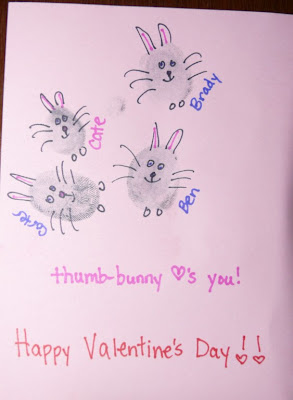 Brady
Cate
Carter
Ben
thumb-bunny ♡'s you!
Happy Valentine's Day!!